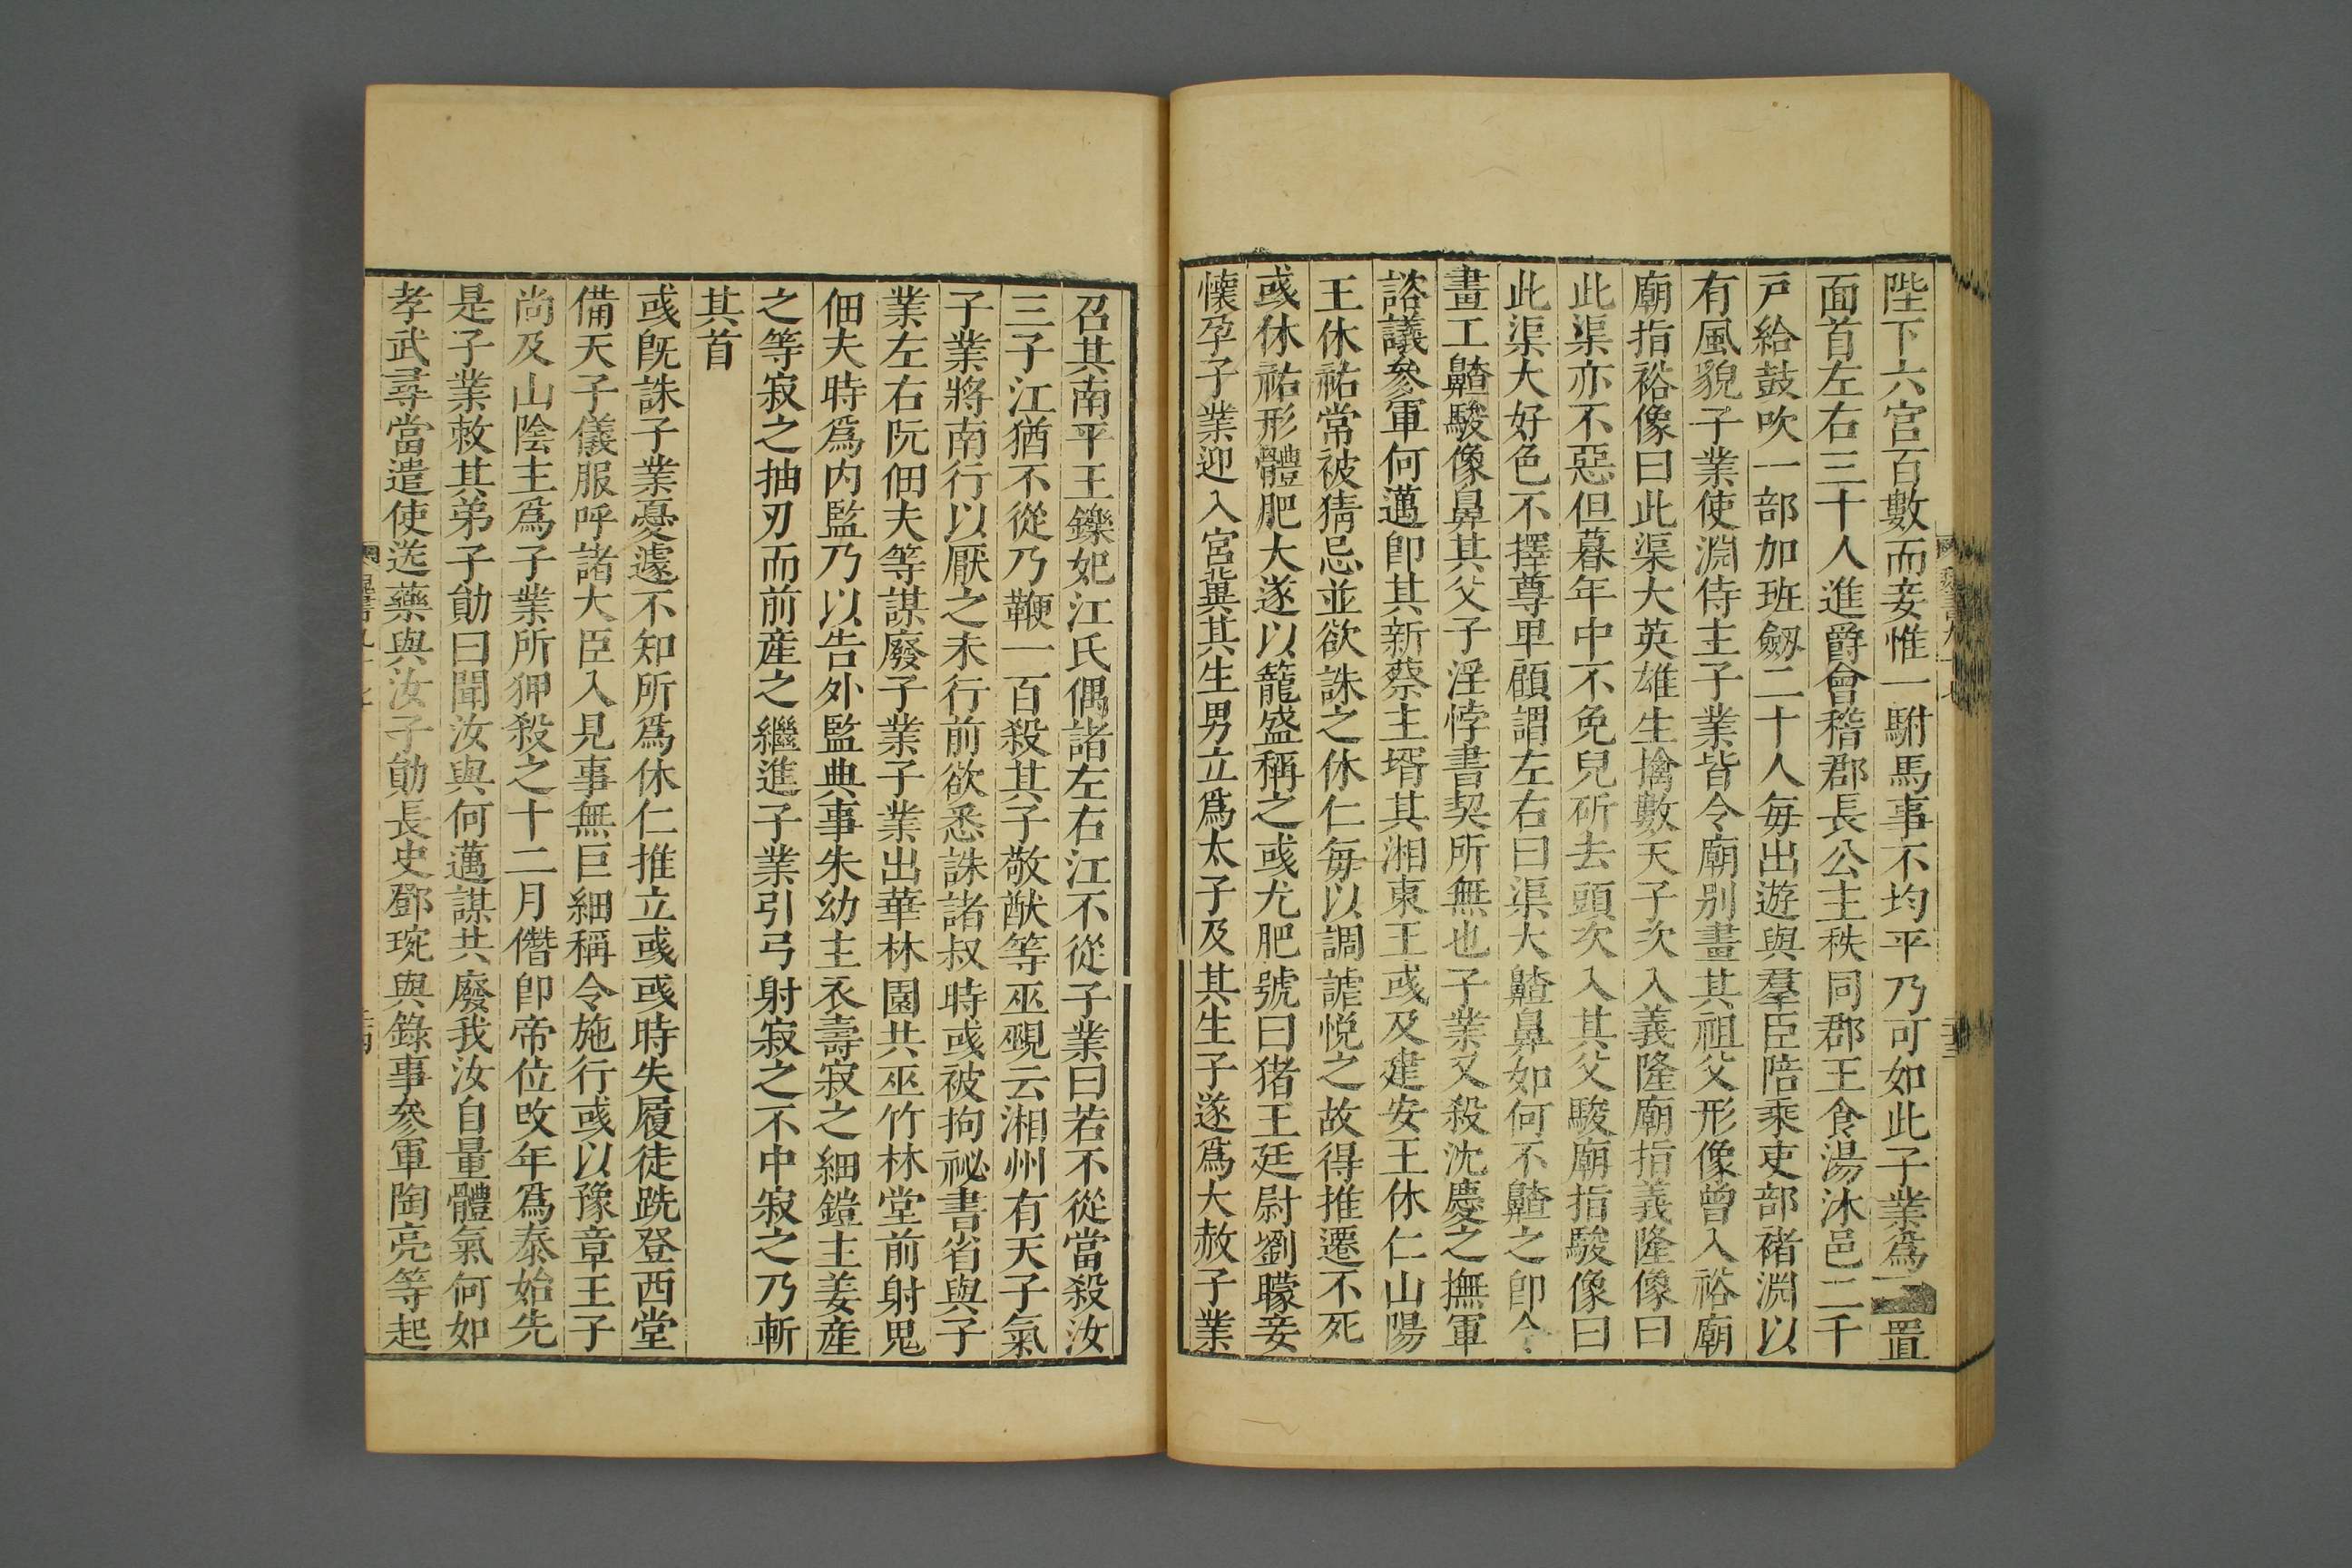 陛下六宮百數而妾惟一駙馬事不均平乃可如此子業爲置
面首左右三十人進爵會稽郡長公主秩同郡王食湯沐邑二千
戸給鼓吹一部加班劒二十人毎出遊與羣臣陪乘吏部褚淵以
有風貌子業使淵侍主子業皆令廟别畫其祖父形像曾入裕廟
廟指裕像曰此渠大英雄生擒數天子次入義隆廟指義隆像曰
此渠亦不惡但暮年中不免兒斫去頭次入其父駿廟指駿像曰
此渠大好色不擇尊卑顧謂左右曰渠大齇鼻如何不齇之卽令
畫工齇駿像鼻其父子淫悖書契所無也子業又殺沈慶之撫軍
諮議參軍何邁卽其新蔡主壻其湘東王彧及建安王休仁山陽
王休祐常被猜忌並欲誅之休仁毎以調謔悦之故得推遷不死
彧休祐形體肥大遂以籠盛稱之彧尤肥號曰猪王廷尉劉矇妾
懷孕子業迎入宮冀其生男立爲太子及其生子遂爲大赦子業
召其南平王鑠妃江氏偶諸左右江不從子業曰若不從當殺汝
三子江猶不從乃鞭一百殺其子敬猷等巫覡云湘州有天子氣
子業將南行以厭之未行前欲悉誅諸叔時彧被拘祕書省與子
業左右阮佃夫等謀廢子業子業出華林園共巫竹林堂前射鬼
佃夫時爲内監乃以告外監典事朱幼主衣壽寂之細鎧主姜産
之等寂之抽刃而前産之繼進子業引弓射寂之不中寂之乃斬
其首
彧旣誅子業憂遽不知所爲休仁推立彧彧時失履徒跣登西堂
備天子儀服呼諸大臣入見事無巨細稱令施行彧以豫章王子
尚及山陰主爲子業所狎殺之十二月僭卽帝位改年爲泰始先
是子業敕其弟子勛曰聞汝與何邁謀共廢我汝自量體氣何如
孝武尋當遣使送藥與汝子勛長史鄧琬與錄事參軍陶亮等起